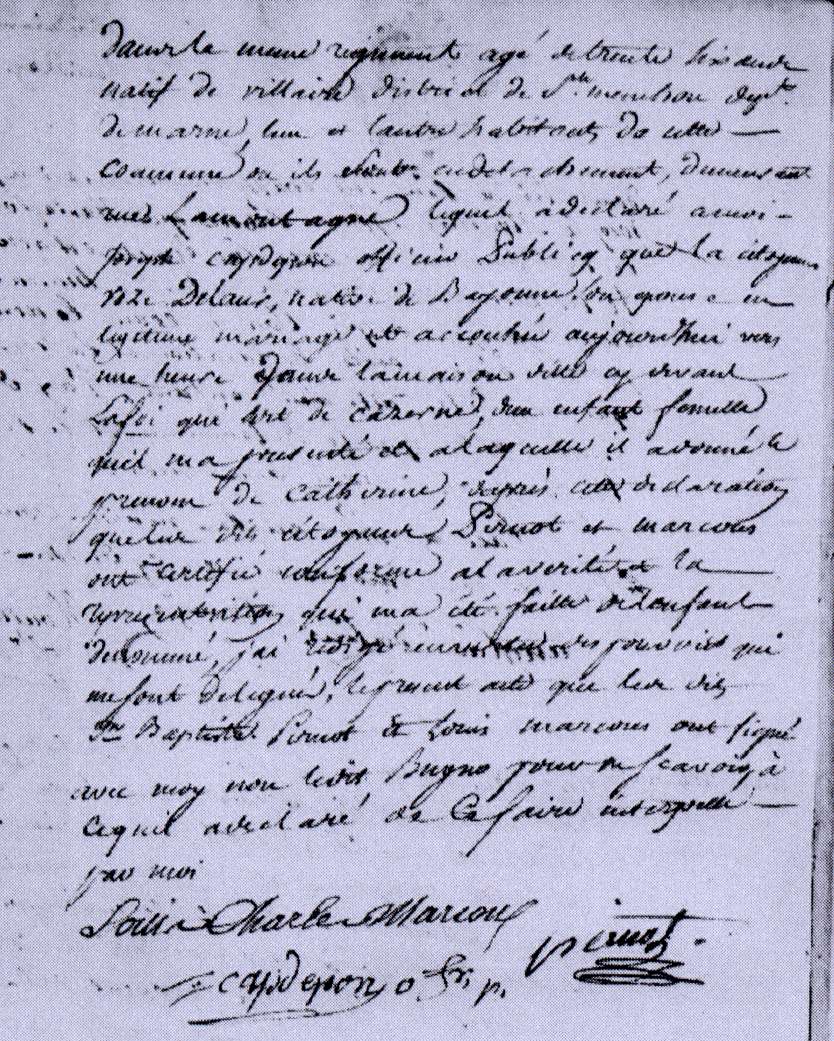 dans le meme regiment agé de trente six ans
natif de villaire district de Ste menehou depts.
de marne, lun et lautre habitants de cette
commune ou ils sont en detachement, demeurant
rue Lamontagne lequel a declaré a moi
joseph capdepon officier Public que la citoyenne
roze Delair, native de Bayonne son epouse en
legitime mariage est accouchée aujourdhui vers
une heure dans la maison ditte cy devant
qui sert de cazerne, dun enfant femelle
quil ma presenté et a laquelle il a donné le
prenom de Catherine, dapres cette declaration
que les dits citoyens Pernot et marcoux
ont certifié conforme a la verité & la
representation qui ma été faitte de lenfant
denommé, jai redigé des pouvoirs qui
me sont delegués, le present acte que les dits
Jn Baptiste Pernot et Louis marcoux ont signé
avec moy non ledit Bugno pour ne scavoir a
ce quil a declaré de ce faire interpellé
par moi
Louis Charle Marcoux
pernot.
capdepon offr. p.